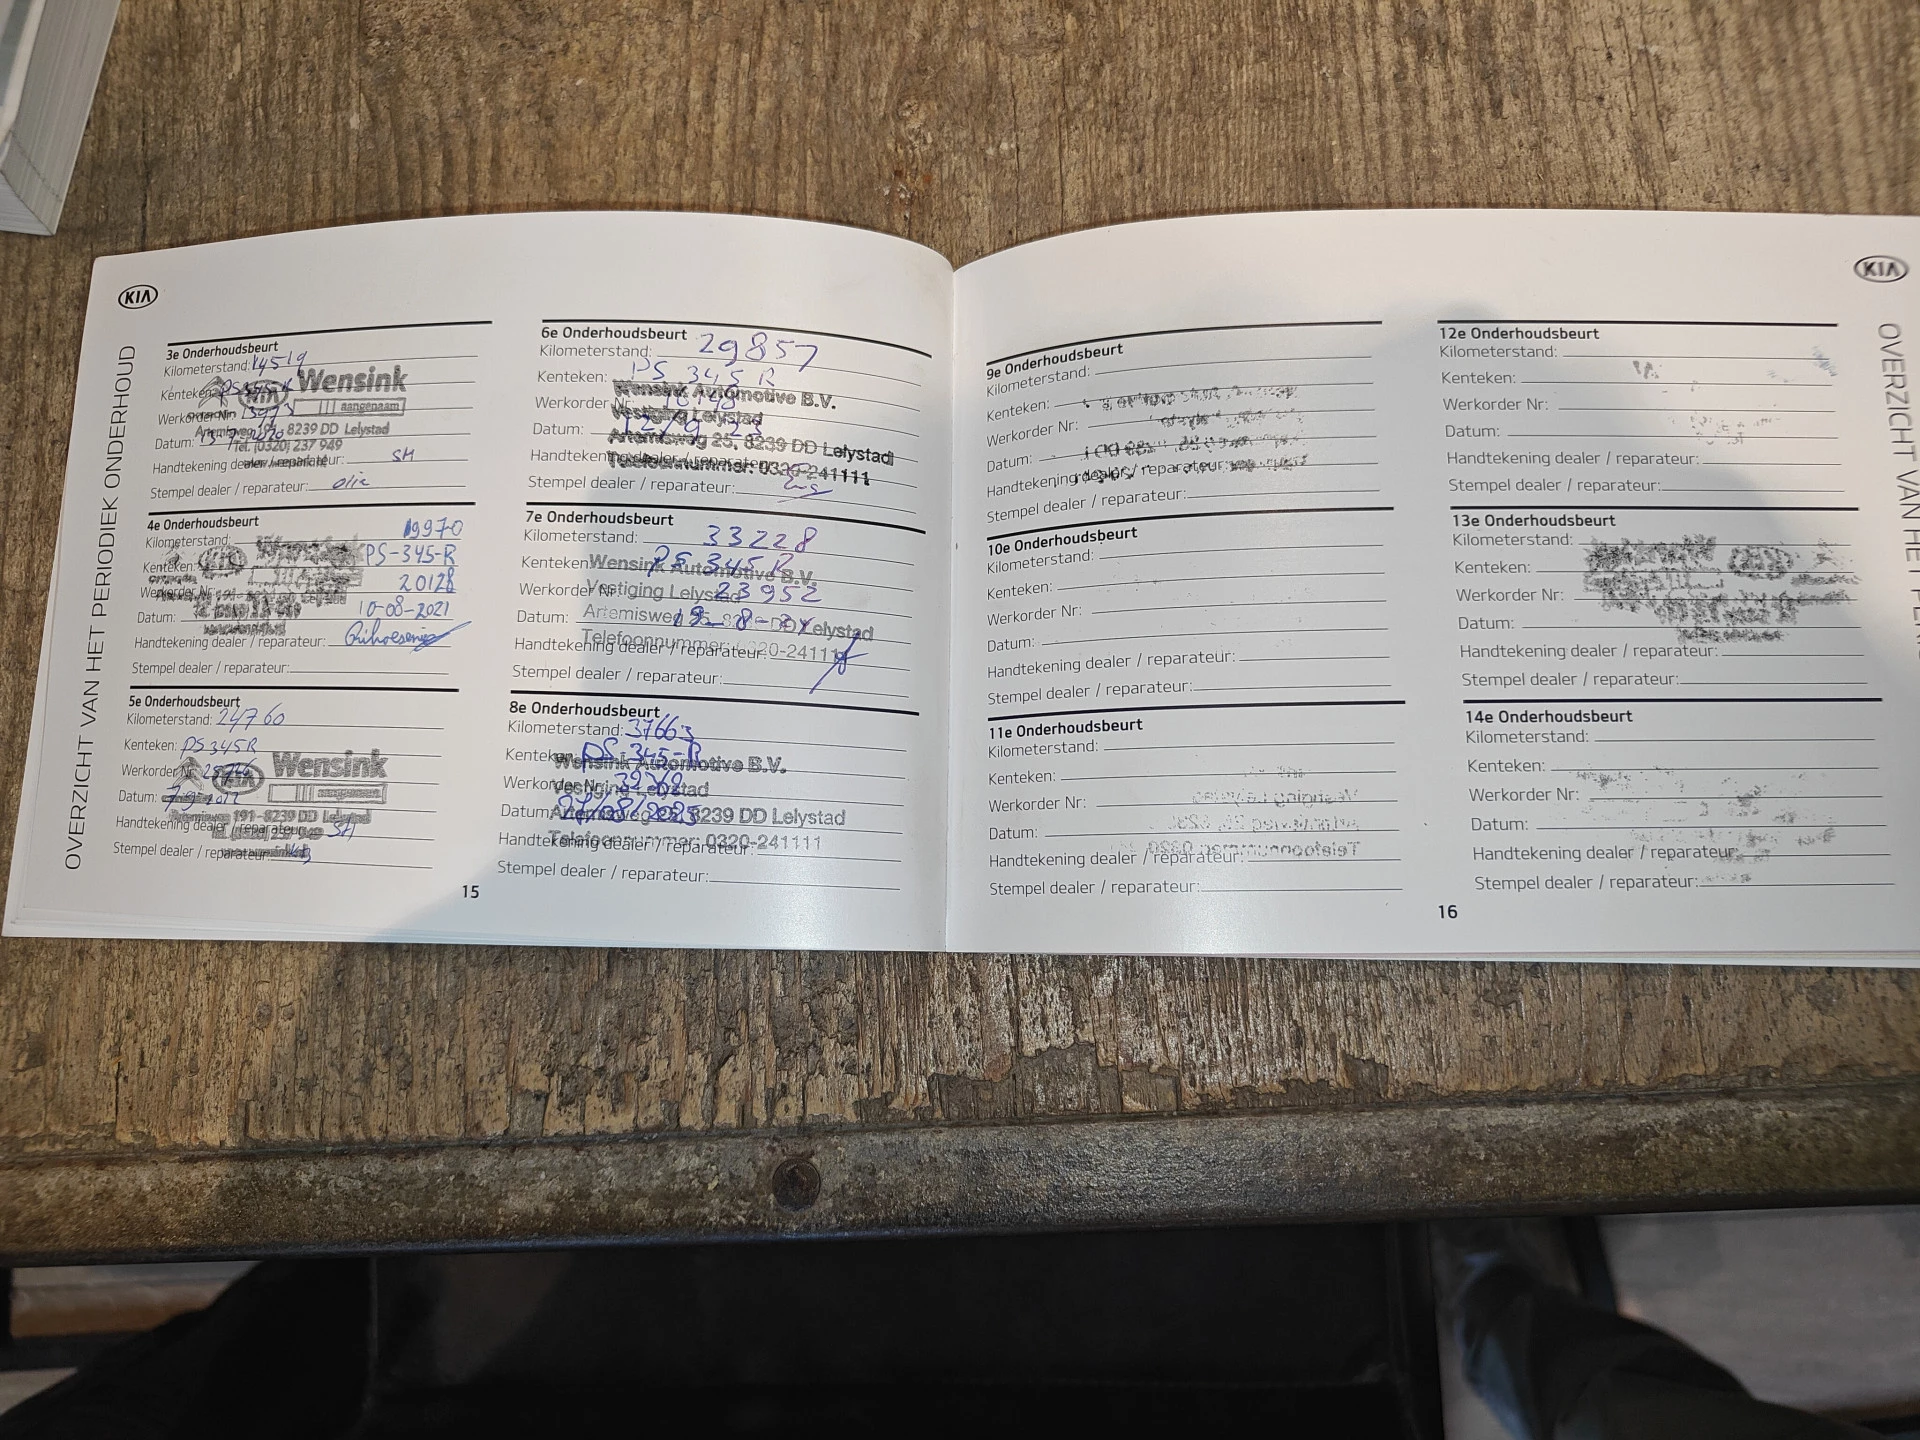 KIA
OVERZICHT VAN HET PERIODIEK ONDERHOUD
3e Onderhoudsbeurt
Kilometerstand: 14519
Kenteken: PS345R
KIA Wensink
aangenaam
Werkorder Nr:
Artemisweg 191 - 8239 DD Lelystad
Datum:
Tel. (0320) 237 949
www.wensink.nl
Handtekening dealer / reparateur: SH
Stempel dealer / reparateur: olie
4e Onderhoudsbeurt
Kilometerstand: 19970
KIA Wensink
Kenteken: PS-345-R
Werkorder Nr: 20128
Datum: 10-08-2021
Handtekening dealer / reparateur:
Stempel dealer / reparateur:
5e Onderhoudsbeurt
Kilometerstand: 24760
Kenteken: PS345R
KIA Wensink
Werkorder Nr:
Datum:
Artemisweg 191 - 8239 DD Lelystad
Handtekening dealer / reparateur: SH
Stempel dealer / reparateur:
6e Onderhoudsbeurt
Kilometerstand: 29857
Kenteken: PS 345 R
Wensink Automotive B.V.
Werkorder Nr:
Vestiging Lelystad
Datum:
Artemisweg 25, 8239 DD Lelystad
Handtekening dealer / reparateur:
Telefoonnummer: 0320-241111
Stempel dealer / reparateur:
7e Onderhoudsbeurt
Kilometerstand: 33228
Kenteken: PS 345 R
Wensink Automotive B.V.
Werkorder Nr: 23952
Vestiging Lelystad
Datum:
Artemisweg 25, 8239 DD Lelystad
Handtekening dealer / reparateur:
Telefoonnummer: 0320-241111
Stempel dealer / reparateur:
8e Onderhoudsbeurt
Kilometerstand: 37663
Kenteken: PS-345-R
Wensink Automotive B.V.
Werkorder Nr:
Vestiging Lelystad
Datum:
Artemisweg 25, 8239 DD Lelystad
Handtekening dealer / reparateur:
Telefoonnummer: 0320-241111
Stempel dealer / reparateur:
15
9e Onderhoudsbeurt
Kilometerstand:
Kenteken:
Werkorder Nr:
Datum:
Handtekening dealer / reparateur:
Stempel dealer / reparateur:
10e Onderhoudsbeurt
Kilometerstand:
Kenteken:
Werkorder Nr:
Datum:
Handtekening dealer / reparateur:
Stempel dealer / reparateur:
11e Onderhoudsbeurt
Kilometerstand:
Kenteken:
Werkorder Nr:
Datum:
Handtekening dealer / reparateur:
Stempel dealer / reparateur:
12e Onderhoudsbeurt
Kilometerstand:
Kenteken:
Werkorder Nr:
Datum:
Handtekening dealer / reparateur:
Stempel dealer / reparateur:
13e Onderhoudsbeurt
Kilometerstand:
Kenteken:
Werkorder Nr:
Datum:
Handtekening dealer / reparateur:
Stempel dealer / reparateur:
14e Onderhoudsbeurt
Kilometerstand:
Kenteken:
Werkorder Nr:
Datum:
Handtekening dealer / reparateur:
Stempel dealer / reparateur:
16
KIA
OVERZICHT VAN HET PERI